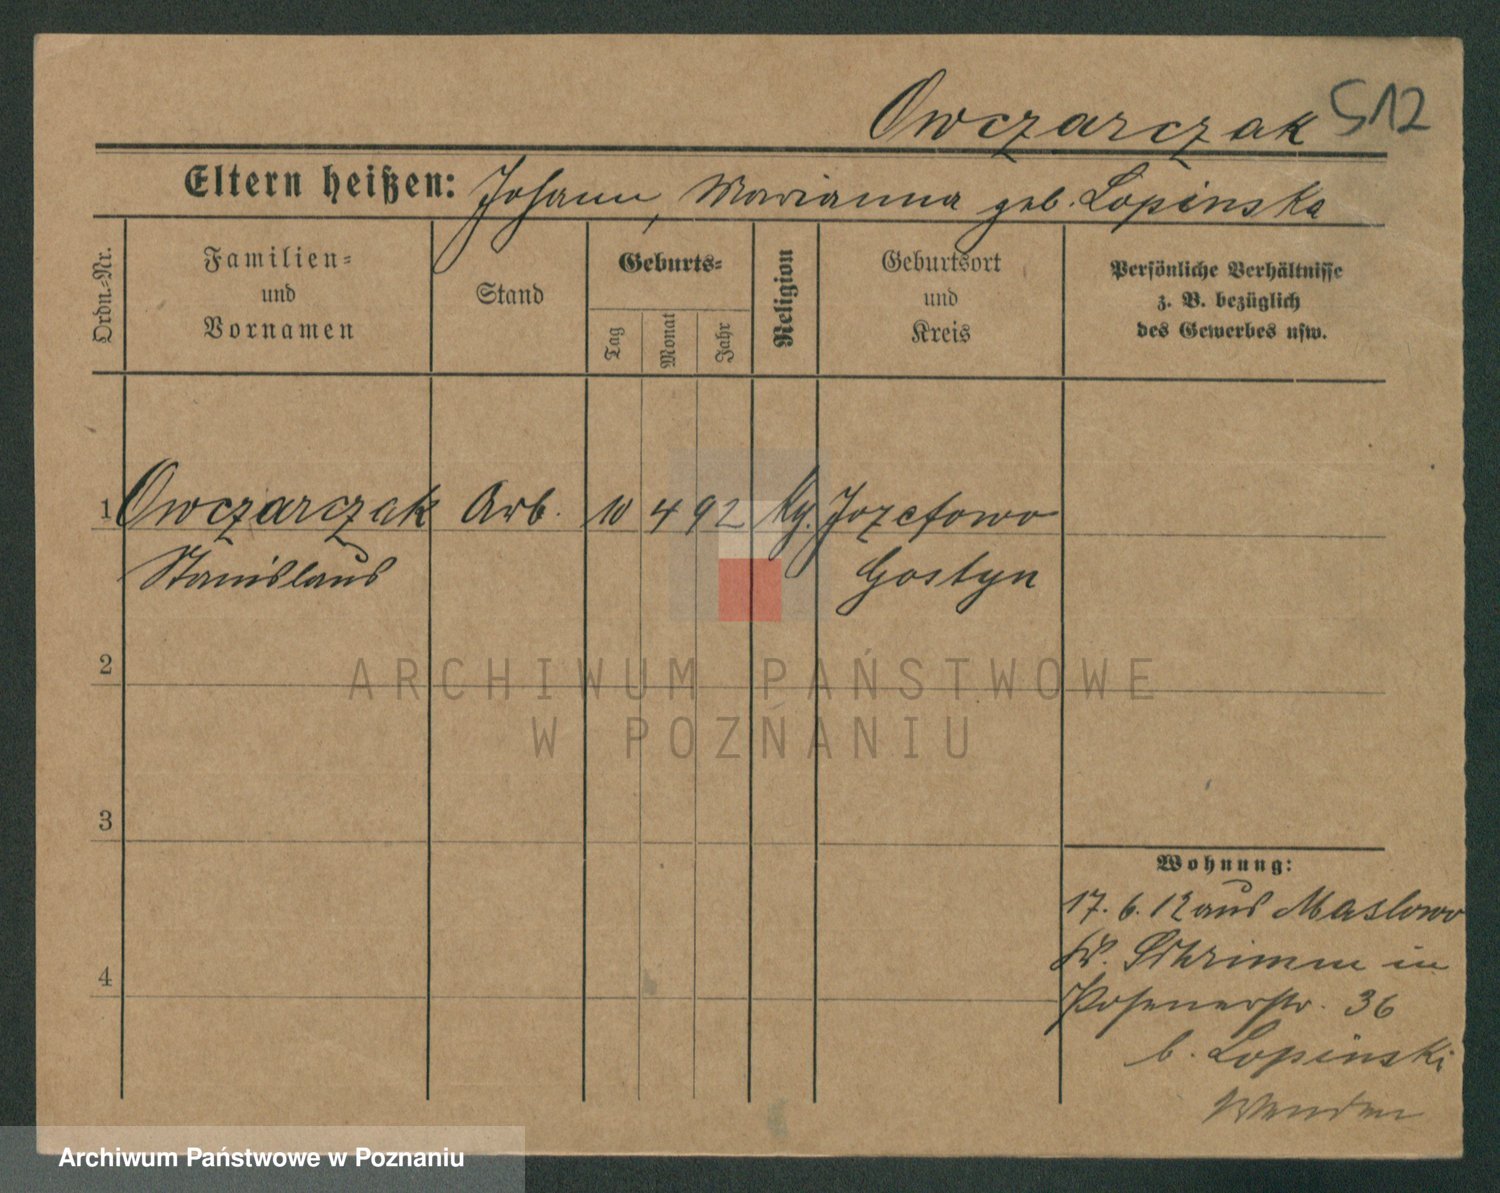 Owczarczak 512
Eltern heißen: Johann, Marianna geb. Lopinska
Ordn.-Nr.
Familien-
und
Vornamen
Stand
Geburts-
Tag
Monat
Jahr
Religion
Geburtsort
und
Kreis
Persönliche Verhältnisse
z. B. bezüglich
des Gewerbes usw.
1 Owczarczak Arb. 10 4 92 Jozefowo
Stanislaus Gostyn
2
ARCHIWUM PAŃSTWOWE
W POZNANIU
3
4
Wohnung:
17. 6. 12 aus Maslowo
Kr. Schrimm in
Posenerstr. 36
b. Lopinski
Wenden
Archiwum Państwowe w Poznaniu